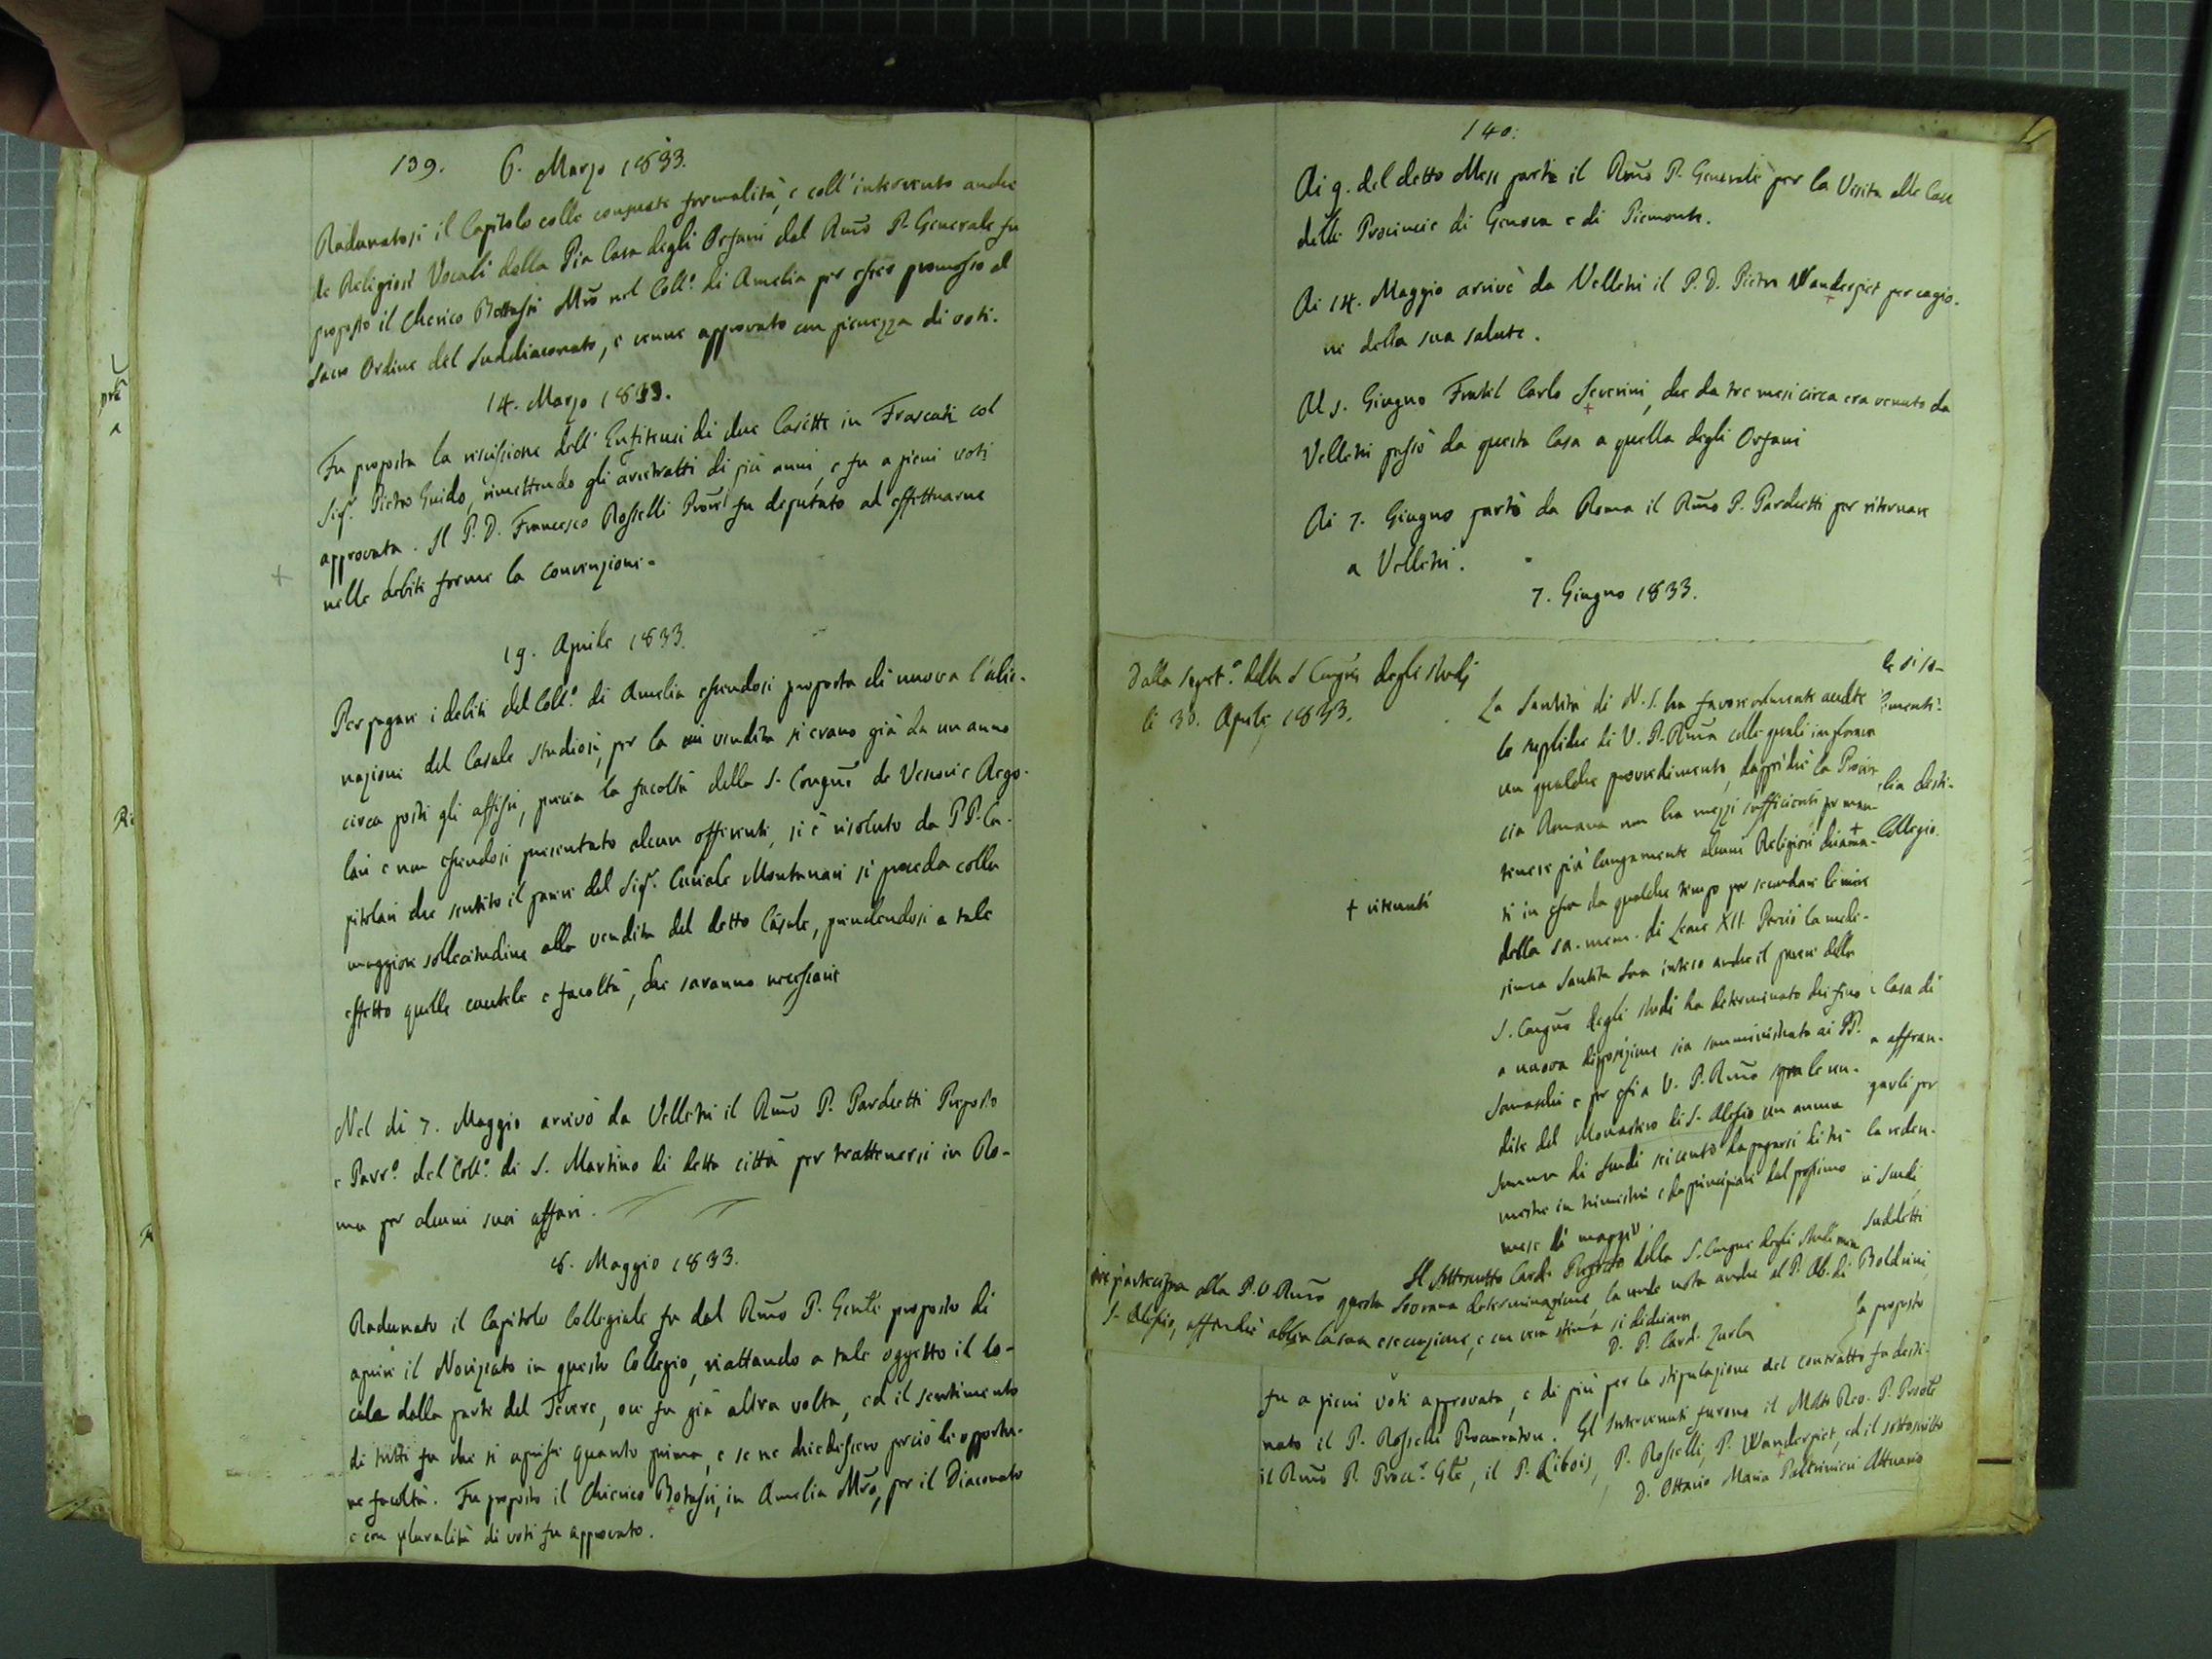 139. 6. Marzo 1833.
Radunatosi il Capitolo colle consuete formalità, e coll'intervento anche
de Religiosi Vocali della Pia Casa degli Orfani dal Rmo P. Generale fu
proposto il Cherico Bottassi Mro nel Coll.º di Amelia per esser promosso al
sacro Ordine del Suddiaconato, e venne approvato con pienezza di voti.
14. Marzo 1833.
Fu proposta la rescissione dell'Enfiteusi di due Casette in Frascati col
Sigr. Pietro Guido, rimettendo gli arretratti di più anni, e fu a pieni voti
approvata. Il P. D. Francesco Rosselli fu deputato ad effettuarne
+ nelle debite forme la convenzione.
19. Aprile 1833.
Per pagare i debiti del Coll.º di Amelia essendosi proposta di nuovo l'alie-
nazione del Casale Studiosi, per la cui vendita si erano già da un anno
circa posti gli affissi, previa la facoltà della S. Congne de Vescovi e Rego-
lari e non essendosi presentato alcun offerente, si è risoluto da PP. Ca-
pitolari che sentito il parere del Sigr. Curiale Montanari si proceda colla
maggiore sollecitudine alla vendita del detto Casale, prendendosi a tale
effetto quelle cautele e facoltà, che saranno necessarie
Nel di 7. Maggio arrivò da Velletri il Rmo P. Parchetti Preposto
e Parr.º del Coll.º di S. Martino di detta città per trattenersi in Ro-
ma per alcuni suoi affari.
8. Maggio 1833.
Radunato il Capitolo Collegiale fu dal Rmo P. Genle proposto di
aprire il Noviziato in questo Collegio, riattando a tale oggetto il lo-
cale dalla parte del Tevere, ove fu già altra volta, ed il sentimento
di tutti fu che si aprisse quanto prima, e se ne chiedessero perciò le opportu-
ne facoltà. Fu proposto il Chierico Botassi, in Amelia Mro, per il Diaconato
e con pluralità di voti fu approvato.
140.
Ai 9. del detto Mese partì il Rmo P. Generale per la Visita alle Case
delle Provincie di Genova e di Piemonte.
Ai 14. Maggio arrivò da Velletri il P. D. Pietro Wanderpiet per cagio-
ne della sua salute.
Al 5. Giugno Fratel Carlo Severini, che da tre mesi circa era venuto da
Velletri passò da questa Casa a quella degli Orfani
Ai 7. Giugno partì da Roma il Rmo P. Parchetti per ritornare
a Velletri.
7. Giugno 1833.
Dalla Segret.ª della S Congne degli Studj
li 30. Aprile 1833.
La Santità di N. S. ha favorevolmente accolte
le suppliche di V. P. Rma colle quali implorava
un qualche provvedimento, dappoichè la Provin
cia Romana non ha mezzi sufficienti per man-
tenere più lungamente alcuni Religiosi chiama- +
ti in essa da qualche tempo per secondare le mire
della sa. mem. di Leone XII. Perciò la mede-
sima Santità Sua inteso anche il parere della
S. Congne degli studi ha determinato che fino
a nuova disposizione sia somministrata ai PP.
Somaschi e per essi a V. P. Rma sopra le ren-
dite del Monastero di S. Alessio un annua
somma di scudi seicento da pagarsi di tri-
mestre in trimestre e da principiare dal prossimo
mese di maggio.
+ ritenuti
Il sottoscritto Card. Prefetto della S. Congne degli Studi
partecipa alla P. V Rma questa Sovrana determinazione, la rende nota anche al P. Ab. di
S. Alessio, affinchè abbia la sua esecuzione, e con vera stima si dichiara
D. P. Card. Zurla
le si so-
menti.
lia desti-
Collegio.
Casa di
a affran-
garli per
la reden-
Scudi
Suddetti
Bolduini
la proposta
fu a pieni voti approvata, e di più per la stipulazione del contratto fu desti-
nato il P. Rosselli Procuratore. Gl'Intervenuti furono il Mlto Rev. P. Proole
il Rmo P. Procr Gle, il P. Libois, P. Rosselli, P. Wanderpiet, ed il sottoscritto
D. Ottavio Maria Paltrinieri Attuario